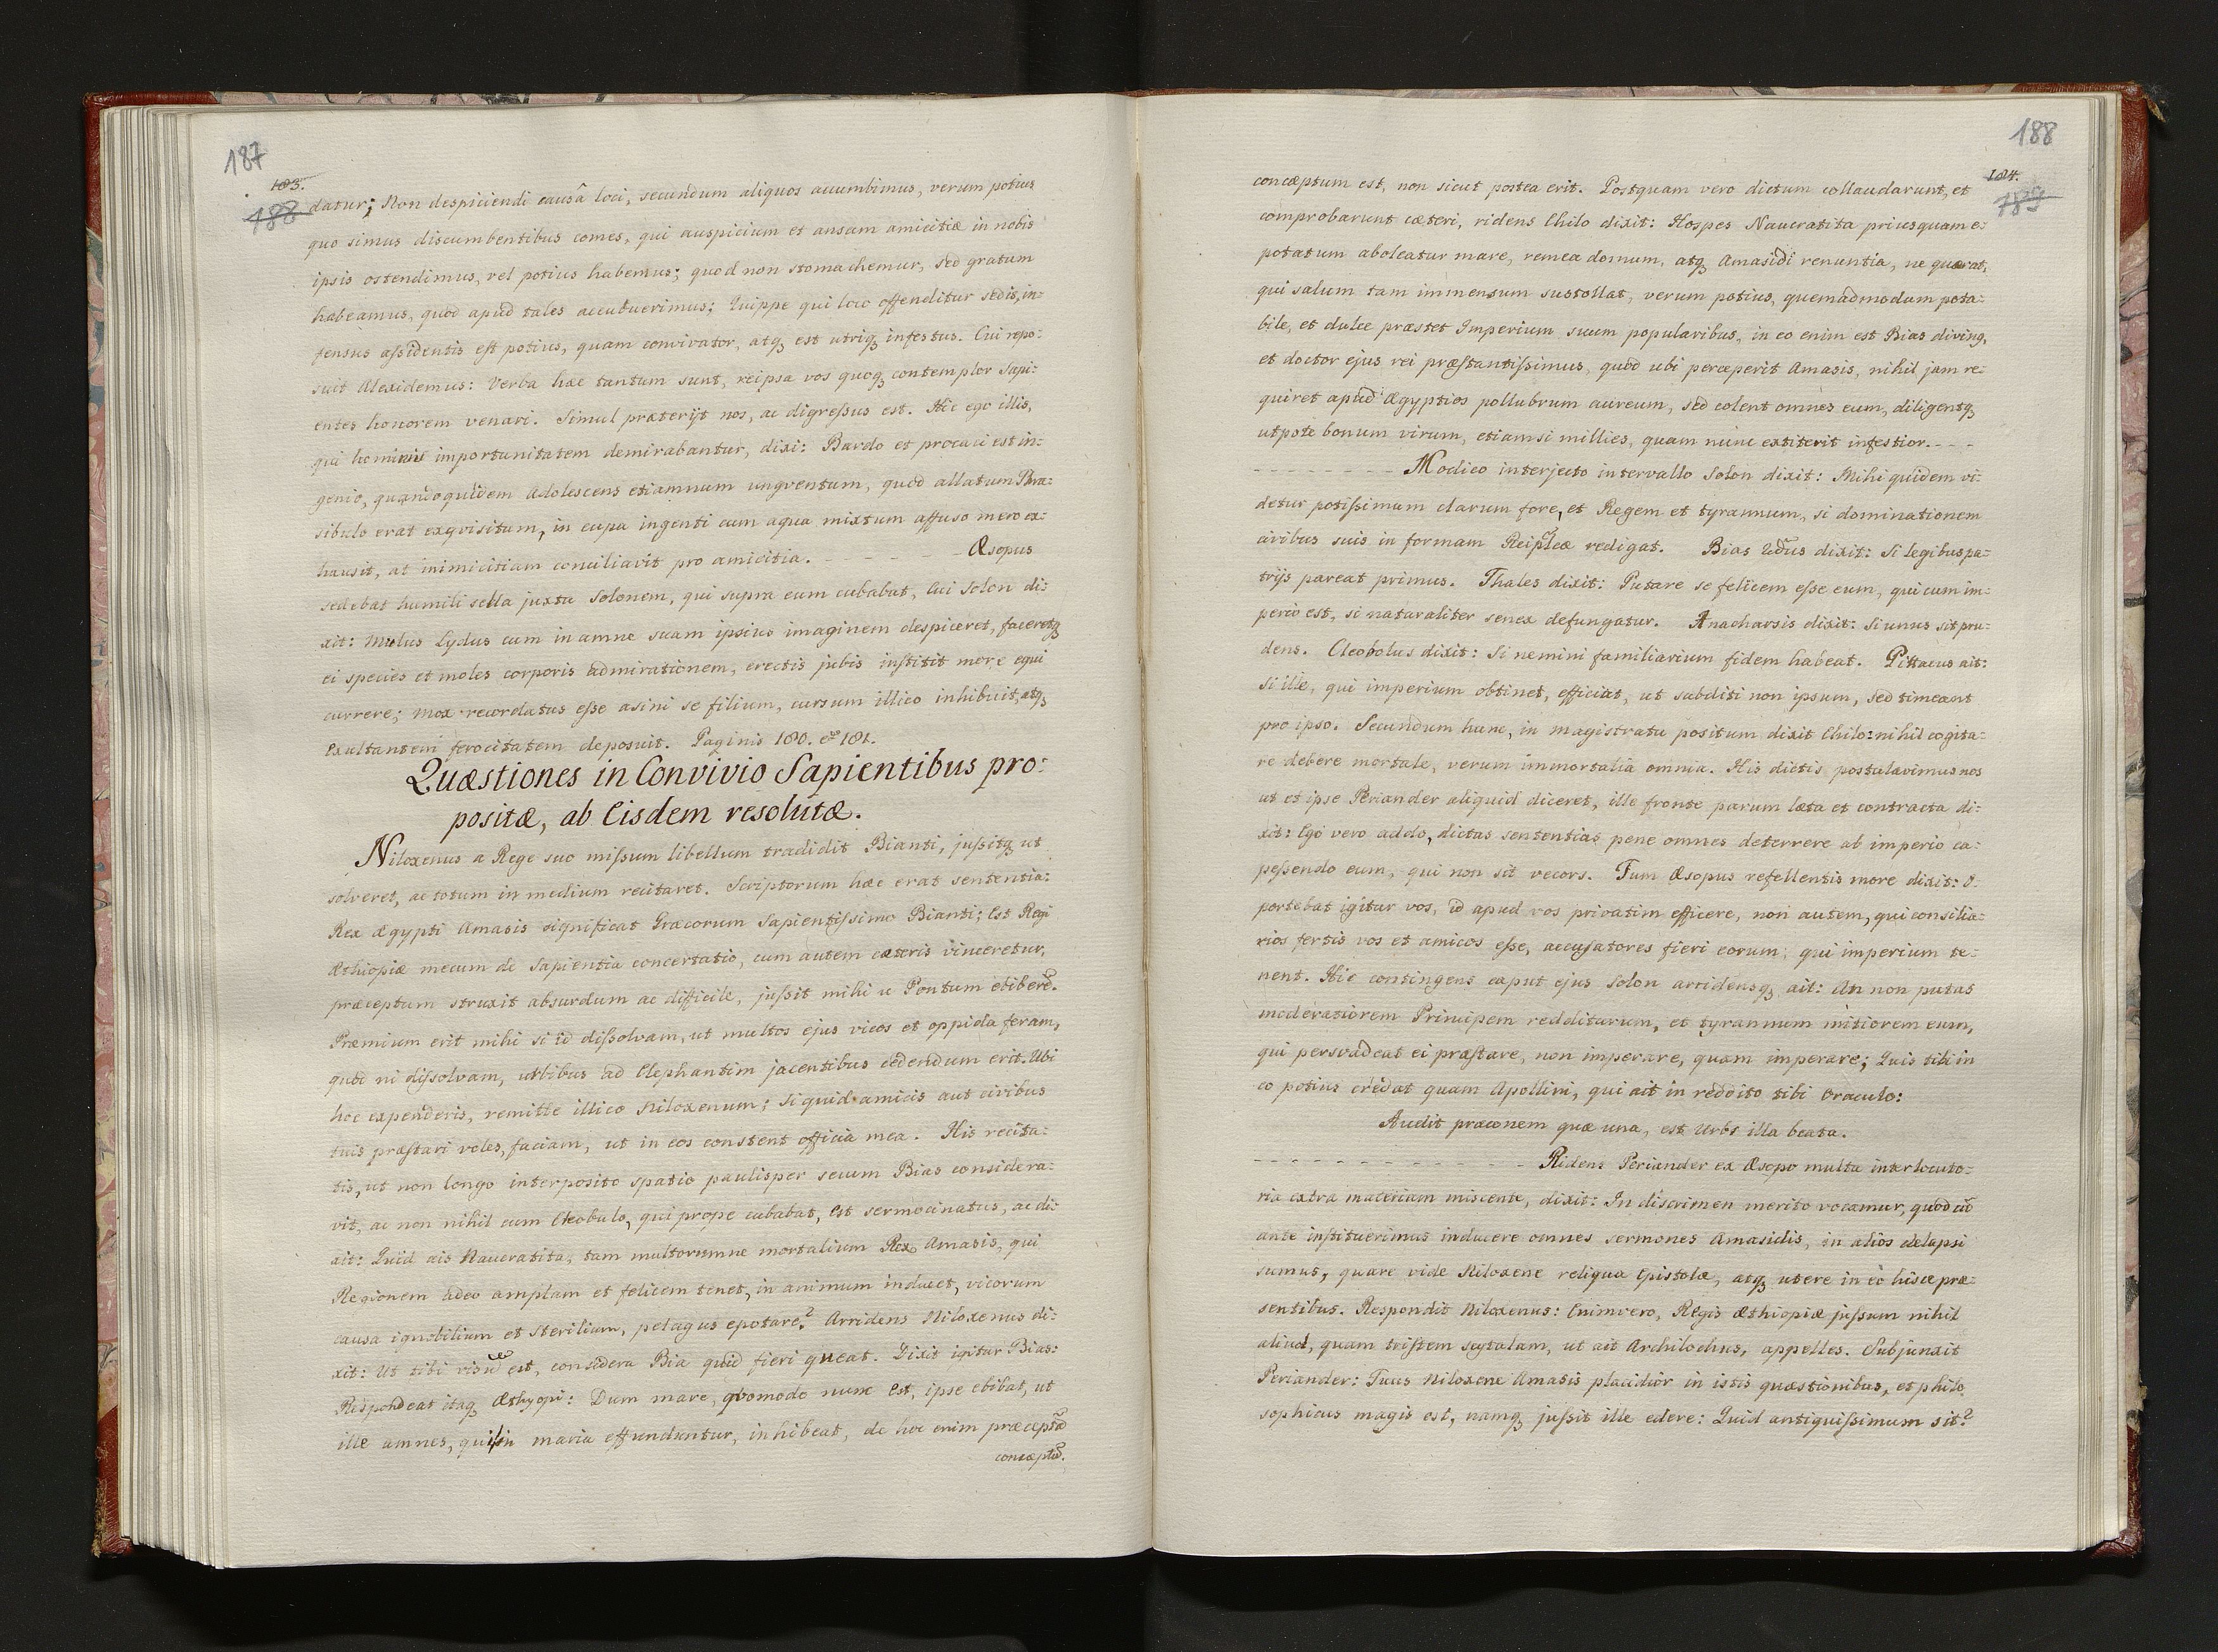 187
183.
188
datur; Non despiciendi causâ loci, secundum aliquos accumbimus, verum potius
quo simus discumbentibus comes, qui auspicium et ansam amicitiæ in nobis
ipsis ostendimus, vel potius habemus; quod non stomachemur, sed gratum
habeamus, quod apud tales accubuerimus; Quippe qui loco offenditur sedis, in-
fensus assidentis est potius, quam convivator, atq est utriq infestus. Cui repo-
suit Alexidemus: Verba hæc tantum sunt, reipsa vos quoq contemplor Sapi-
entes honorem venari. Simul præterijt nos, ac digressus est. Hic ego illis,
qui hominis importunitatem demirabantur, dixi: Bardo et procaci est in-
genio, quandoquidem Adolescens etiamnum ungventum, quod allatum Thra-
sibulo erat exqvisitum, in cupa ingenti cum aqua mixtum affuso mero ex-
hausit, at inimicitiam conciliavit pro amicitia. - - - - - - Æsopus
sedebat humili sella juxta Solonem, qui supra eum cubabat, Cui Solon di-
xit: Mulus Lydus cum in amne suam ipsius imaginem despiceret, faceretq
ei species et moles corporis admirationem, erectis jubis institit more equi
currere; mox recordatus esse asini se filium, cursum illico inhibuit, atq
exultantem ferocitatem deposuit. Paginis 180. et 181.
Quæstiones in Convivio Sapientibus pro-
positæ, ab Eisdem resolutæ.
Niloxenus a Rege suo missum libellum tradidit Bianti, jussitq ut
solveret, ac totum in medium recitaret. Scriptorum hæc erat sententia:
Rex Ægypti Amasis significat Græcorum Sapientissimo Bianti; Est Regi
Æthiopiæ mecum de Sapientia concertatio, cum autem cæteris vinceretur,
præceptum struxit absurdum ac difficile, jussit mihi u Pontum ebiberē.
Præmium erit mihi si id dissolvam, ut multos ejus vicos et oppida feram,
quod ni dissolvam, urbibus ad Elephantim jacentibus cedendum erit. Ubi
hoc expenderis, remitte illico Niloxenum; Si quid amicis aut civibus
tuis præstari voles, faciam, ut in eos constent officia mea. His recita-
tis, ut non longo interposito spatio paulisper secum Bias considera-
vit, ac non nihil cum Cleobulo, qui prope cubabat, est sermocinatus, ac di-
xit: Quid ais Naucratita, tam multorumne mortalium Rex Amasis, qui
Regionem adeo amplam et felicem tenet, in animum inducet, vicorum
causa ignobilium et sterilium, pelagus epotare? Arridens Niloxenus di-
xit: Ut tibi visū est, considera Bia quid fieri queat. Dixit igitur Bias:
Respondeat itaq Æthyopi: Dum mare, qvomodo nunc est, ipse ebibat, ut
ille amnes, qui in maria effunduntur, inhibeat, de hoc enim præceptū
conceptū.
188
184.
189
conceptum est, non sicut postea erit. Postquam vero dictum collaudarunt, et
comprobarunt cæteri, ridens Chilo dixit: Hospes Naucratita priusquam e-
potatum aboleatur mare, remea domum, atq Amasidi renuntia, ne quærat,
qui salum tam immensum sustollat, verum potius, quemadmodum pota-
bile, et dulce præstet Imperium suum popularibus, in eo enim est Bias divinq,
et doctor ejus rei præstantissimus, quod ubi perceperit Amasis, nihil jam re-
quiret apud Ægyptios pollubrum aureum, sed colent omnes eum, diligentq
utpote bonum virum, etiamsi millies, quam nunc extiterit infestior. - - -
- - - - - - - - Modico interjecto intervallo Solon dixit: Mihi quidem vi-
detur potissimum clarum fore, et Regem et tyrannum, si dominationem
civibus suis in formam Reiplcæ redigat. Bias 2dus dixit: Si legibus pa-
trijs pareat primus. Thales dixit: Putare se felicem esse eum, qui cum im-
perio est, si naturaliter senex defungatur. Anacharsis dixit: Si unus sit pru-
dens. Cleobolus dixit: Si nemini familiarium fidem habeat. Pittacus ait:
Si ille, qui imperium obtinet, efficiat, ut subditi non ipsum, sed timeant
pro ipso. Secundum hunc, in magistratu positum dixit Chilo: nihil cogita-
re debere mortale, verum immortalia omnia. His dictis postulavimus nos
ut et ipse Periander aliquid diceret, ille fronte parum læta et contracta di-
xit: Ego vero addo, dictas sententias pene omnes deterrere ab imperio ca-
pessendo eum, qui non sit vecors. Tum Æsopus refellentis more dixit: O-
portebat igitur vos, id apud vos privatim efficere, non autem, qui consilia-
rios fertis vos et amicos esse, accusatores fieri eorum, qui imperium te-
nent. Hic contingens caput ejus Solon arridensq ait: An non putas
moderatiorem Principem redditurum, et tyrannum mitiorem eum,
qui persvadeat ei præstare, non imperare, quam imperare; Quis tibi in
eo potius credat quam Apollini, qui ait in reddito tibi Oraculo:
Audit præconem quæ una, est Urbs illa beata.
- - - - - - - - - - - - - - Ridens Periander ex Æsopo multa interlocuto-
ria extra materiam miscente, dixit: In discrimen merito vocamur, quod cū
ante instituerimus inducere omnes sermones Amasidis, in alios delapsi
sumus, quare vide Niloxene reliqua Epistolæ, atq utere in eo hisce præ-
sentibus. Respondit Niloxenus: Enimvero, Regis Æthiopiæ jussum nihil
aliud, quam tristem scytalam, ut ait Archilochus, appelles. Subjunxit
Periander: Tuus Niloxene Amasis placidior in istis quæstionibus, et philo
sophicus magis est, namq jussit ille edere: Quid antiquissimum sit?